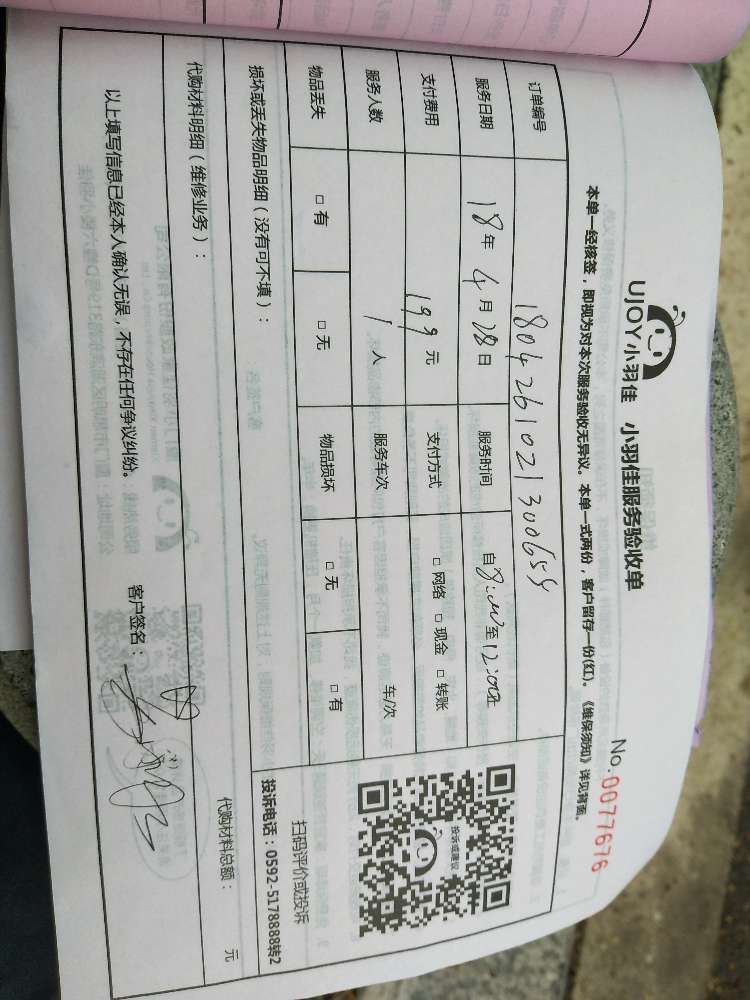 UJOY小羽佳 小羽佳服务验收单
No.0077676
本单一经核签，即视为对本次服务验收无异议。本单一式两份，客户留存一份(红)。《维保须知》详见背面。
订单编号 180426102130065
服务日期 18年4月28日 服务时间 自8:00至12:00
支付费用 199元 支付方式 □网络 □现金 □转账
服务人数 1人 服务车次 车/次
物品丢失 □有 □无 物品损坏 □无 □有
投诉或建议
扫码评价或投诉
投诉电话：0592-5178888转2
损坏或丢失物品明细（没有可不填）：
代购材料明细（维修业务）： 代购材料总额： 元
以上填写信息已经本人确认无误，不存在任何争议纠纷。 客户签名：